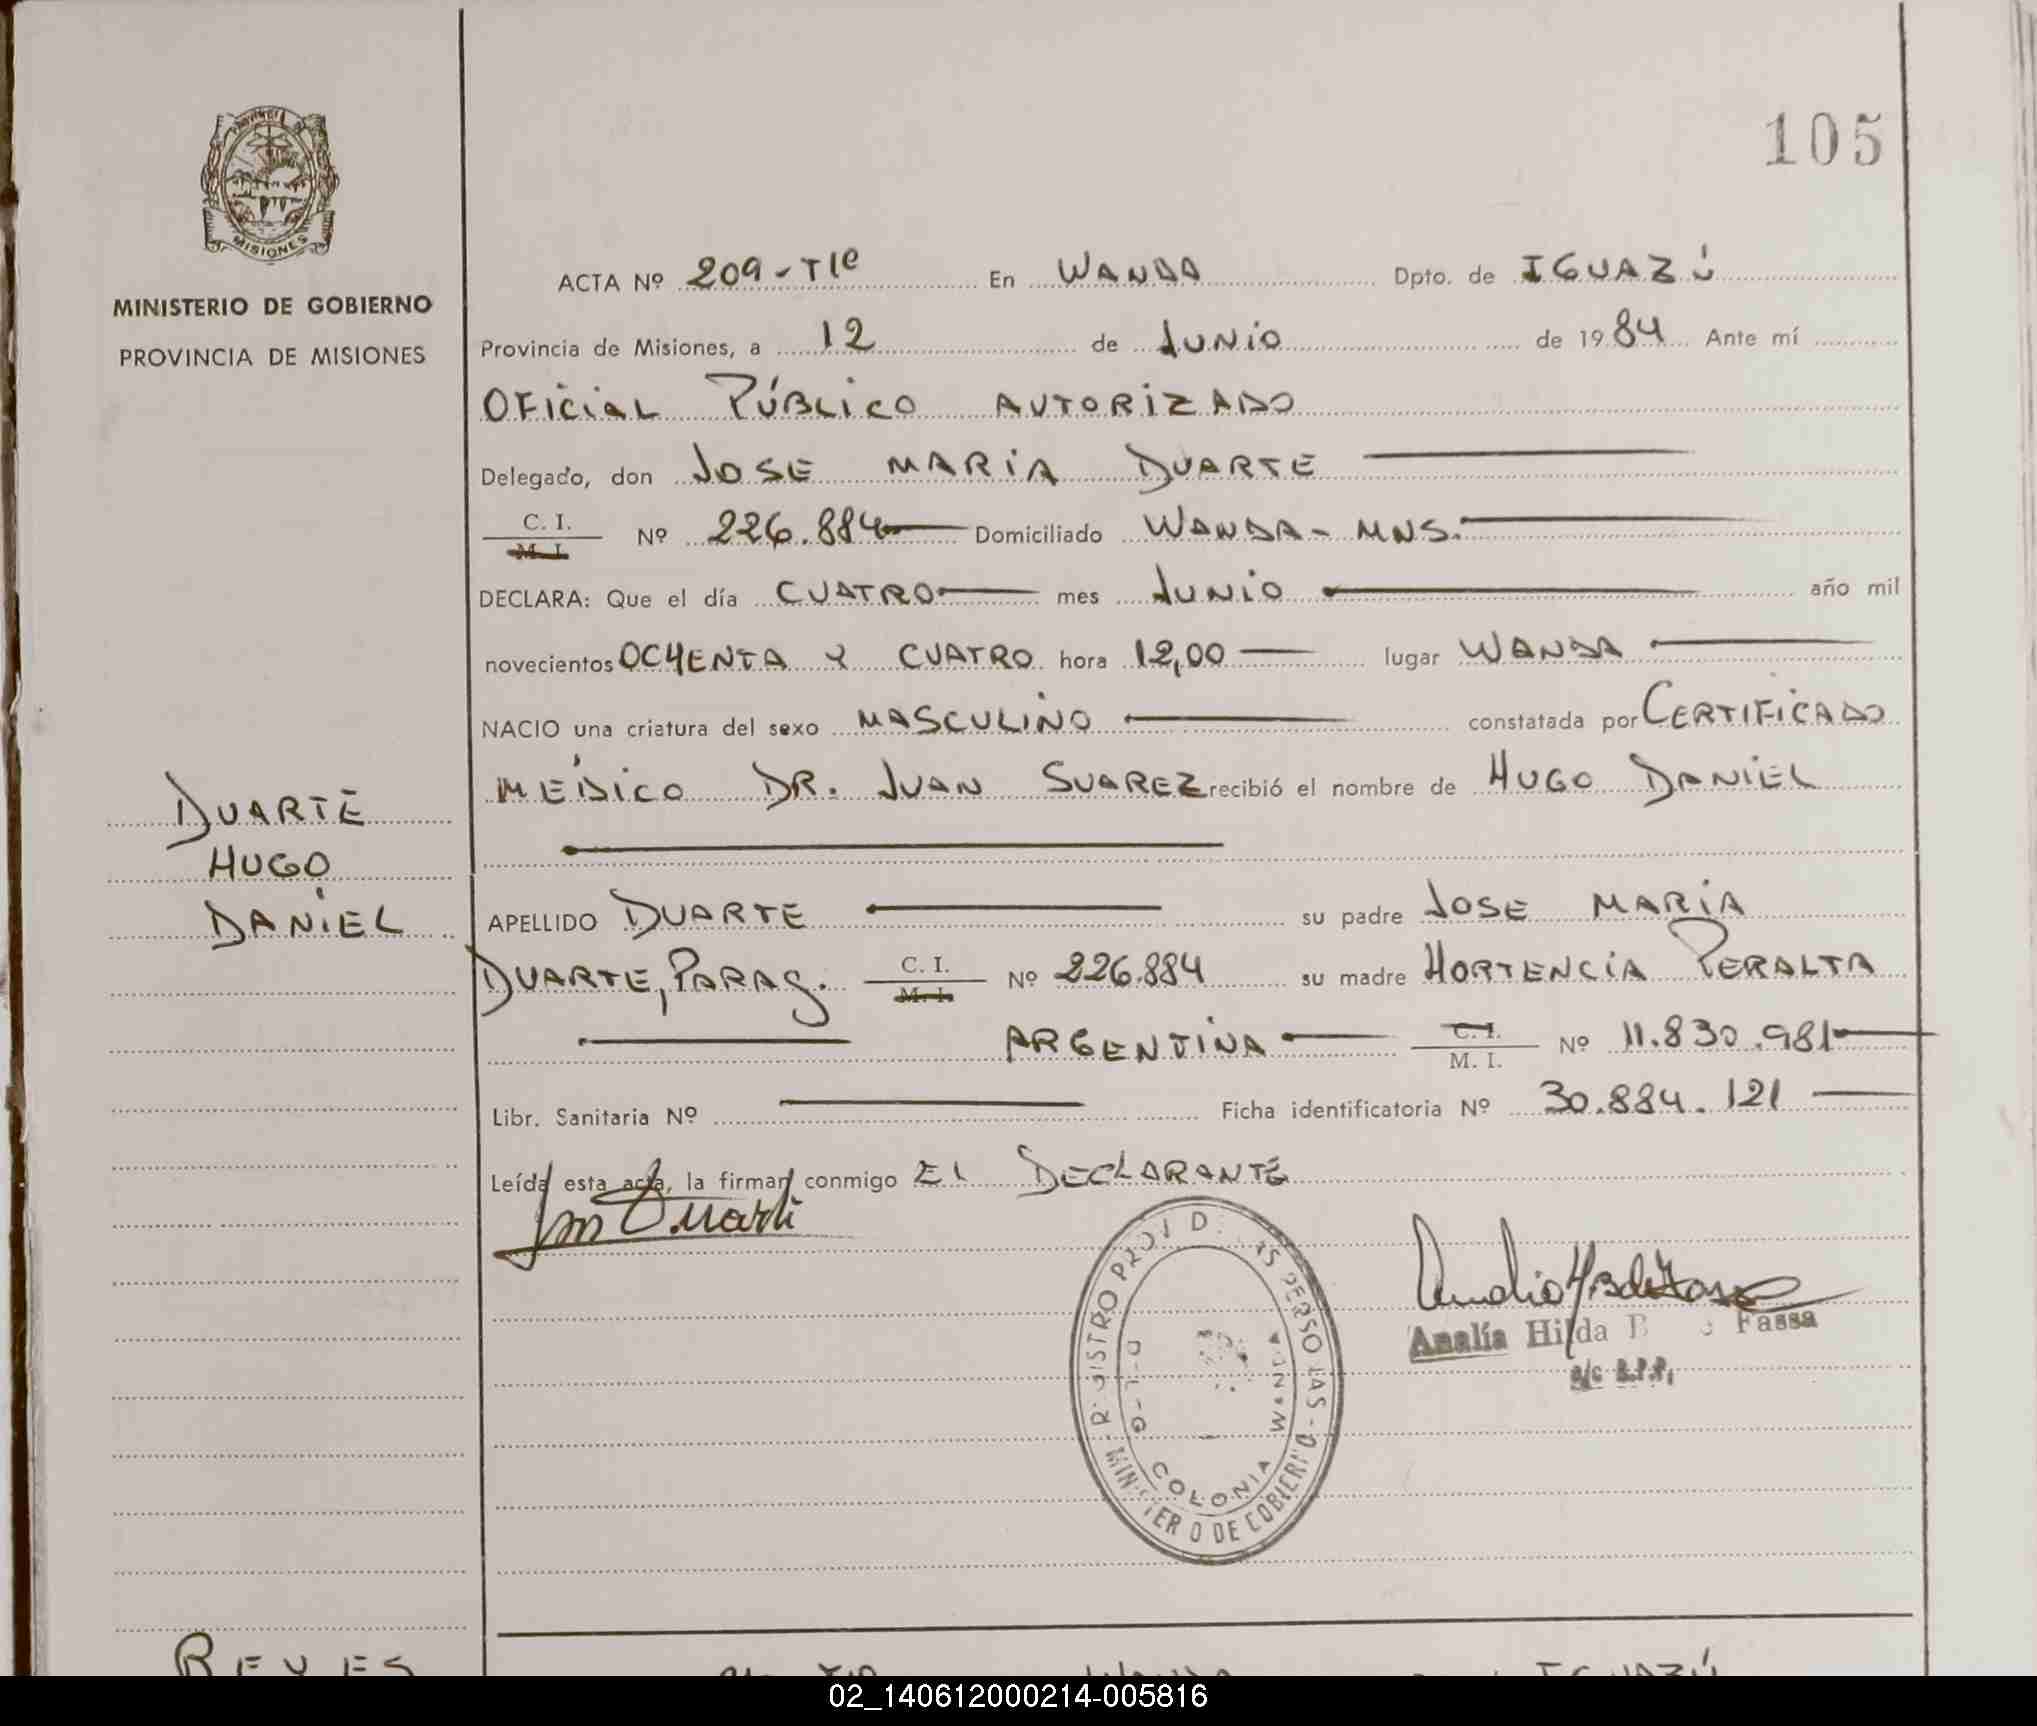 105
MISIONES
MINISTERIO DE GOBIERNO
PROVINCIA DE MISIONES
DUARTE
HUGO
DANIEL
ACTA Nº 209-TIº En WANDA Dpto. de IGUAZÚ
Provincia de Misiones, a 12 de JUNIO de 1984 Ante mí
OFICIAL PÚBLICO AUTORIZADO
Delegado, don JOSE MARIA DUARTE
C. I. M. I. Nº 226.884 Domiciliado WANDA - MNS.
DECLARA: Que el día CUATRO mes JUNIO año mil
novecientos OCHENTA Y CUATRO hora 12,00 lugar WANDA
NACIO una criatura del sexo MASCULINO constatada por CERTIFICADO
MÉDICO DR. JUAN SUAREZ recibió el nombre de HUGO DANIEL
APELLIDO DUARTE su padre JOSE MARIA
DUARTE, PARAG. C. I. M. I. Nº 226.884 su madre HORTENCIA PERALTA
ARGENTINA C. I. M. I. Nº 11.830.981
Libr. Sanitaria Nº Ficha identificatoria Nº 30.884.121
Leída esta acta, la firman conmigo El DECLARANTE
Analía Hilda Fassa
COLONIA WANDA
MINISTERIO DE GOBIERNO
REYES
02_140612000214-005816